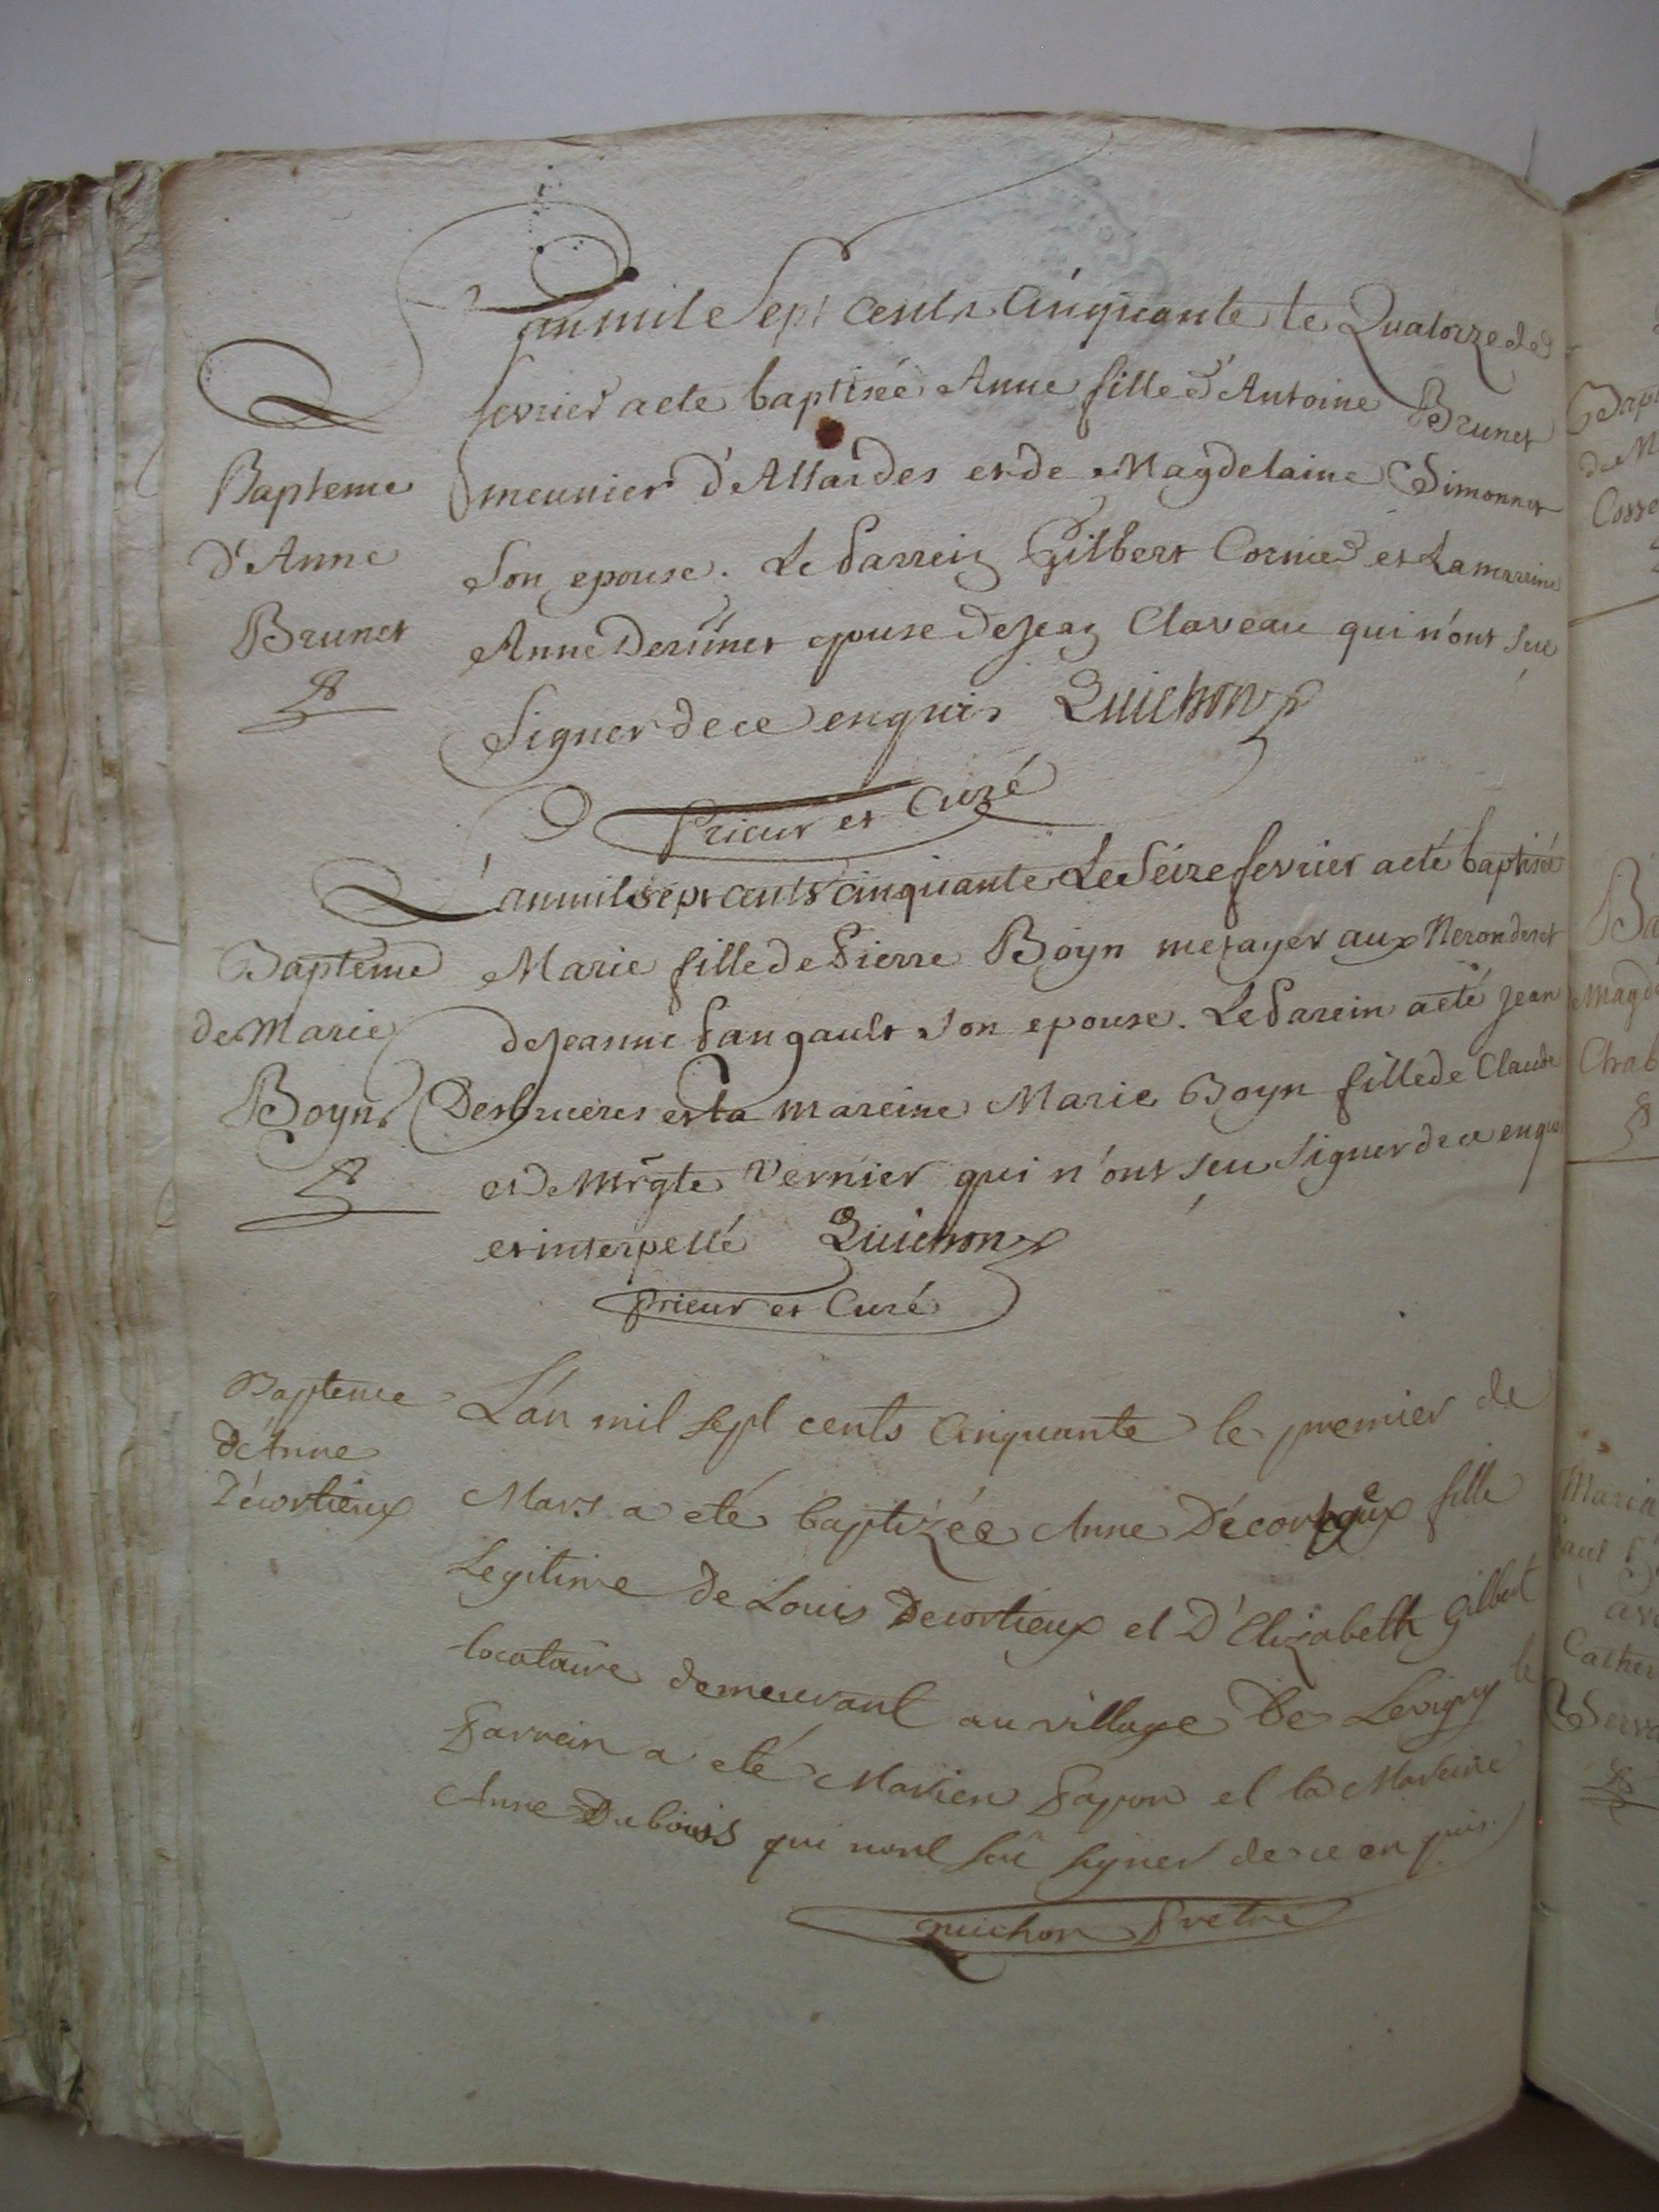 L'an mile sept cents cinquante le Quatorze de
fevrier a ete baptisée Anne fille d'Antoine Brunet
Bapteme
d'Anne
Brunet
meunier d'Allardes et de Magdelaine Simonnet
son epouse. Le Parrein Gilbert Cornier et La mareine
Anne epouse de Jean Claveau qui n'ont seu
signer de ce enquis Quichon
Prieur et Curé
L'an mil sept cents cinquante Le Seize fevrier a eté baptisée
Bapteme
de Marie
Boyn
Marie fille de Pierre Boyn metayer aux Nerondes et
de Jeanne Pangault son epouse. Le Parein a eté Jean
Desbruieres et la mareine Marie Boyn fille de Claude
et de Mrgte Vernier qui n'ont seu signer de ce enquis
et interpellé Quichon
Prieur et Curé
Bapteme
d'Anne
Décortieux
L'an mil sept cents Cinquante le premier de
Mars a eté baptizée Anne Décortieux fille
Legitime de Louis Decortieux et D'Elizabeth Gilbert
locataire demeurant au village De Levigny le
Parrein a eté Marien Papon et la Mareine
Anne Dubois qui nont seu signer de ce en quis
Quichon Pretre
Bapt
de M
Cosse
Ba
Magd
Chab
Maria
Cather